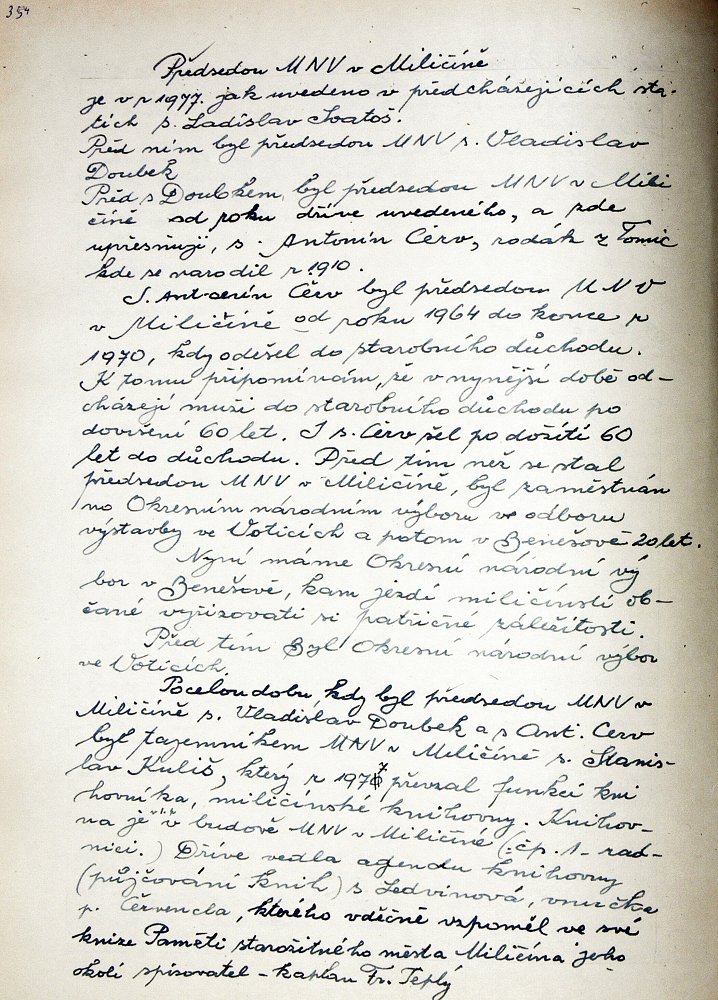 354
Předsedou MNV v Miličíně
je v r 1977. jak uvedeno v předcházejících sta-
tích s. Ladislav Svatoš.
Před ním byl předsedou MNV s. Vladislav
Doubek
Před s Doubkem, byl předsedou MNV v Mili
číně od roku dříve uvedeného, a zde
upřesňuji, s. Antonín Červ, rodák z Tomic
kde se narodil r. 1910.
S. Antonín Červ byl předsedou MNV
v Miličíně od roku 1964 do konce r
1970, kdy odešel do starobního důchodu.
K tomu připomínám, že v nynější době od-
cházejí muži do starobního důchodu po
dovršení 60 let. I s. Červ šel po dožití 60
let do důchodu. Před tím než se stal
předsedou MNV v Miličíně, byl zaměstnán
na Okresním národním výboru ve odboru
výstavby ve Voticích a potom v Benešově 20 let.
Nyní máme Okresní národní vý
bor v Benešově, kam jezdí miličínští ob-
čané vyřizovati si patřičné záležitosti.
Před tím Byl Okresní národní výbor
ve Voticích.
Po celou dobu, kdy byl předsedou MNV v
Miličíně s. Vladislav Doubek a s Ant. Červ
byl tajemníkem MNV v Miličíně s. Stanis-
lav Kuliš, který r 1977 převzal funkci kni
hovníka, miličínské knihovny. Knihov-
na je v budově MNV v Miličíně (:čp. 1- rad-
nici.) Dříve vedla agendu knihovny
(půjčování knih) s Ledvinová, vnučka
p. Července, kterého vděčně vzpoměl ve své
knize Paměti starožitného města Miličína jeho
okolí spisovatel - kaplan Fr. Teplý